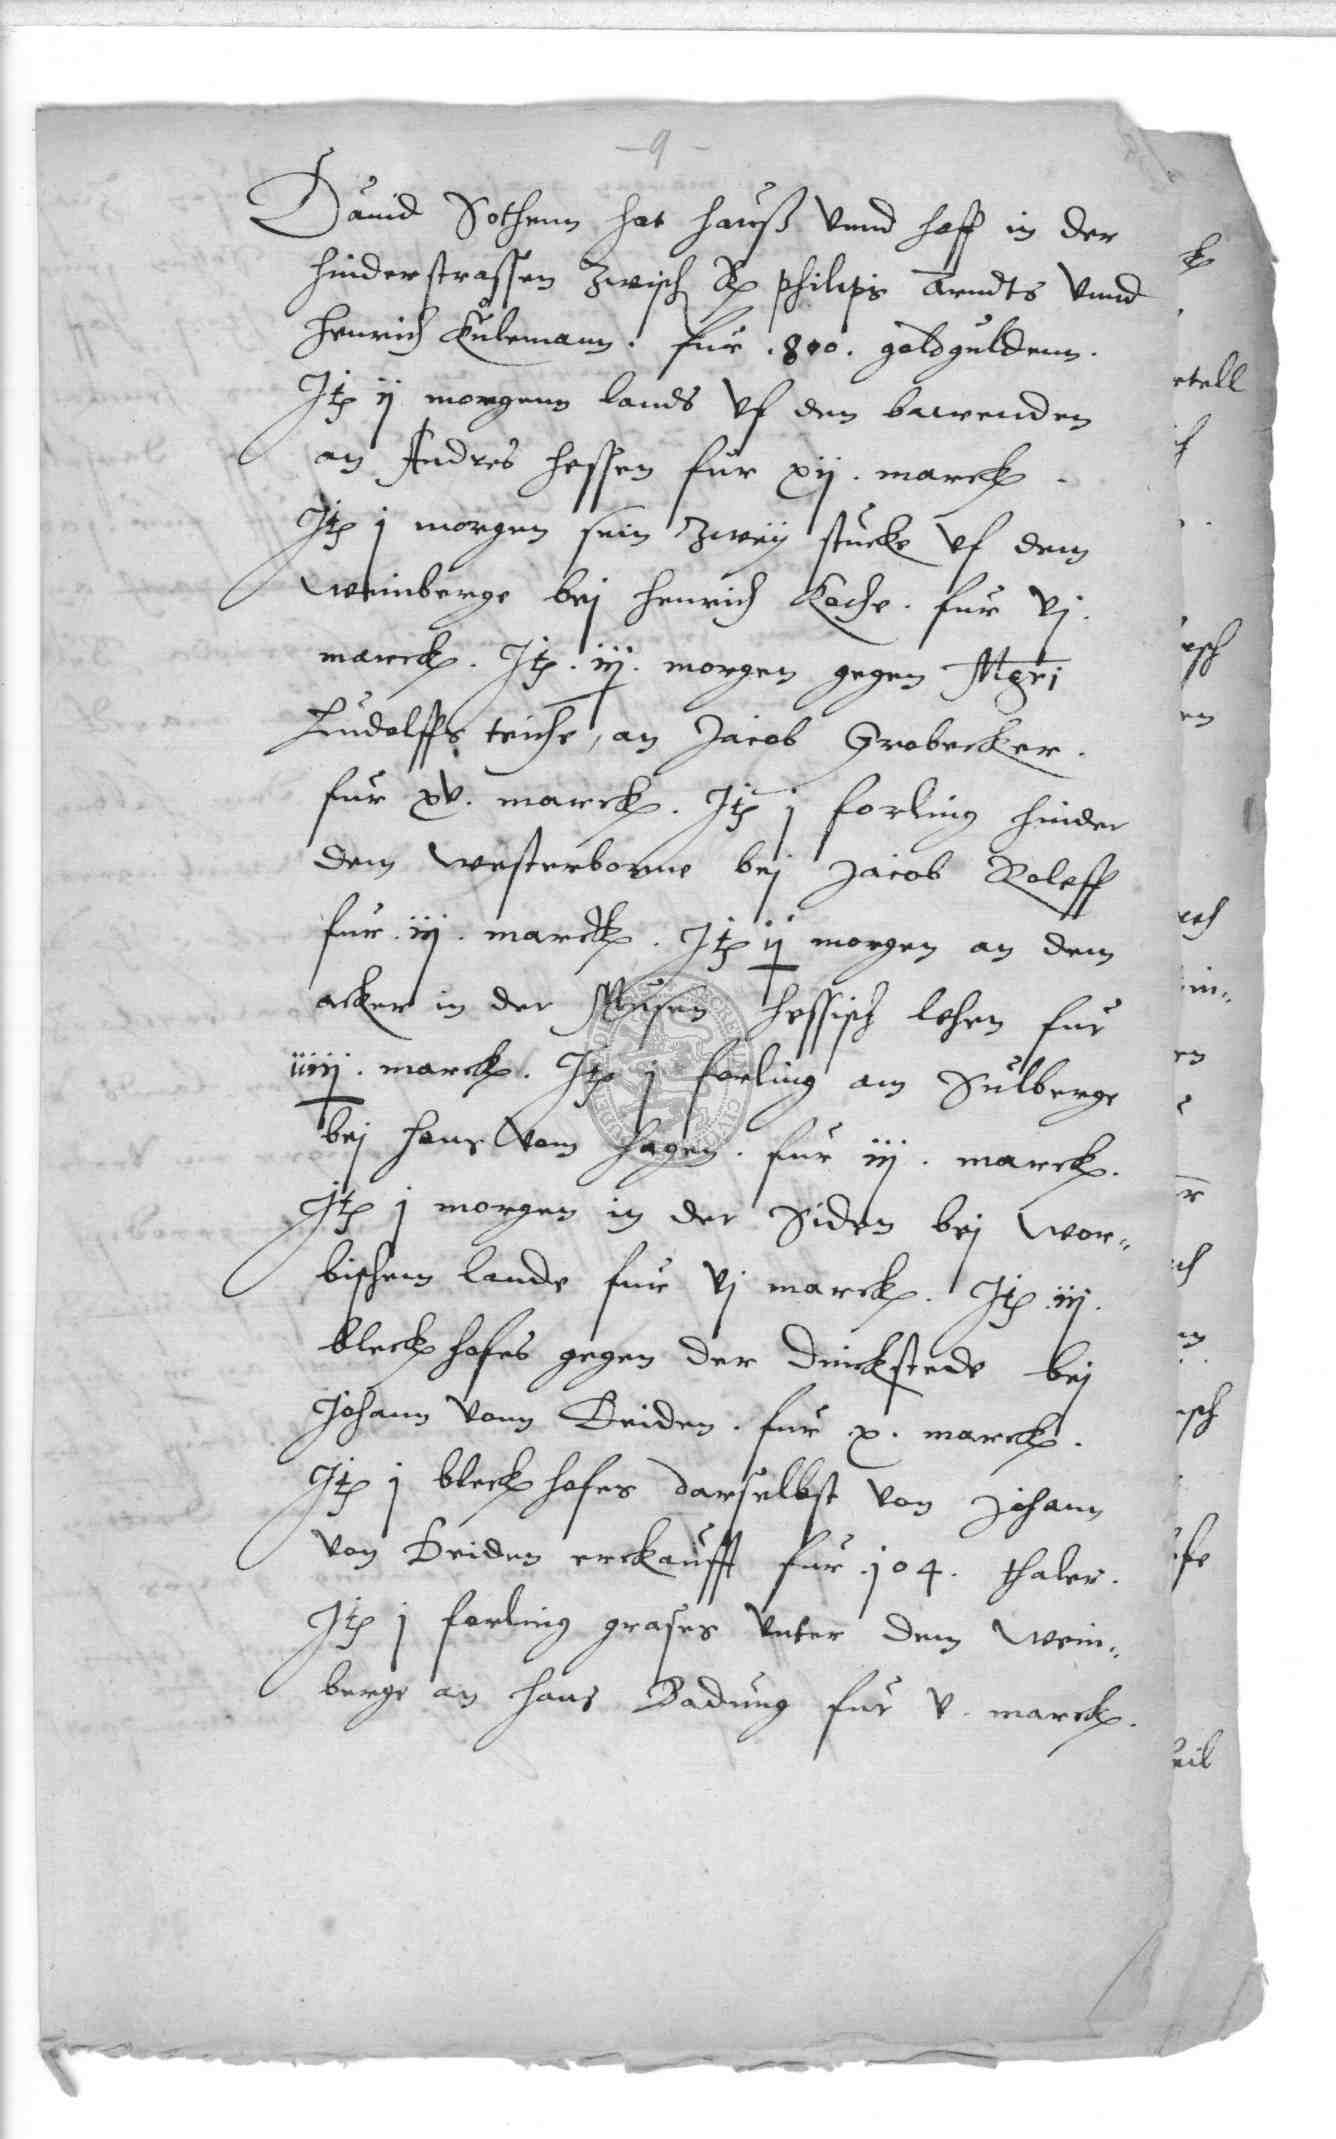 - 9 -
Dauid Sothenn hat hauß vnnd hoff in der
hinderstrassen zwisch R philips Arndts vnnd
henrich Kulemann . fur . 800 . goldguldenn .
Jt ij morgenn lands vf den bawenden
an Andres hessen fur xij . marck .
Jt j morgen sein zweij stucke vf dem
weinberge bej henrich Koche . fur vj .
marck . Jt . iij . morgen gegen Mgri
Ludolffs teiche , an Jacob Grobecker .
fur xv . marck . Jt j forling hinder
dem westerborne bej Jacob Roleff
fur . iij . marck . Jt ij morgen an dem
acker in der Musen hessisch lehen fur
iiiij . marck . Jt j forling am Sulberge
bej hans vom hagen . fur iij . marck .
Jt j morgen in der Siden bej wor„
bischem lande fur vj marck . Jt . iij .
bleck hofes gegen der dinckstede bej
Johann vonn Beiden . fur x . marck .
Jt j bleck hofes darselbst von Johann
von Beiden erckaufft fur . j04 . thaler .
Jt j forling grases vnter dem wein„
berge an hans Badung fur v . marck .